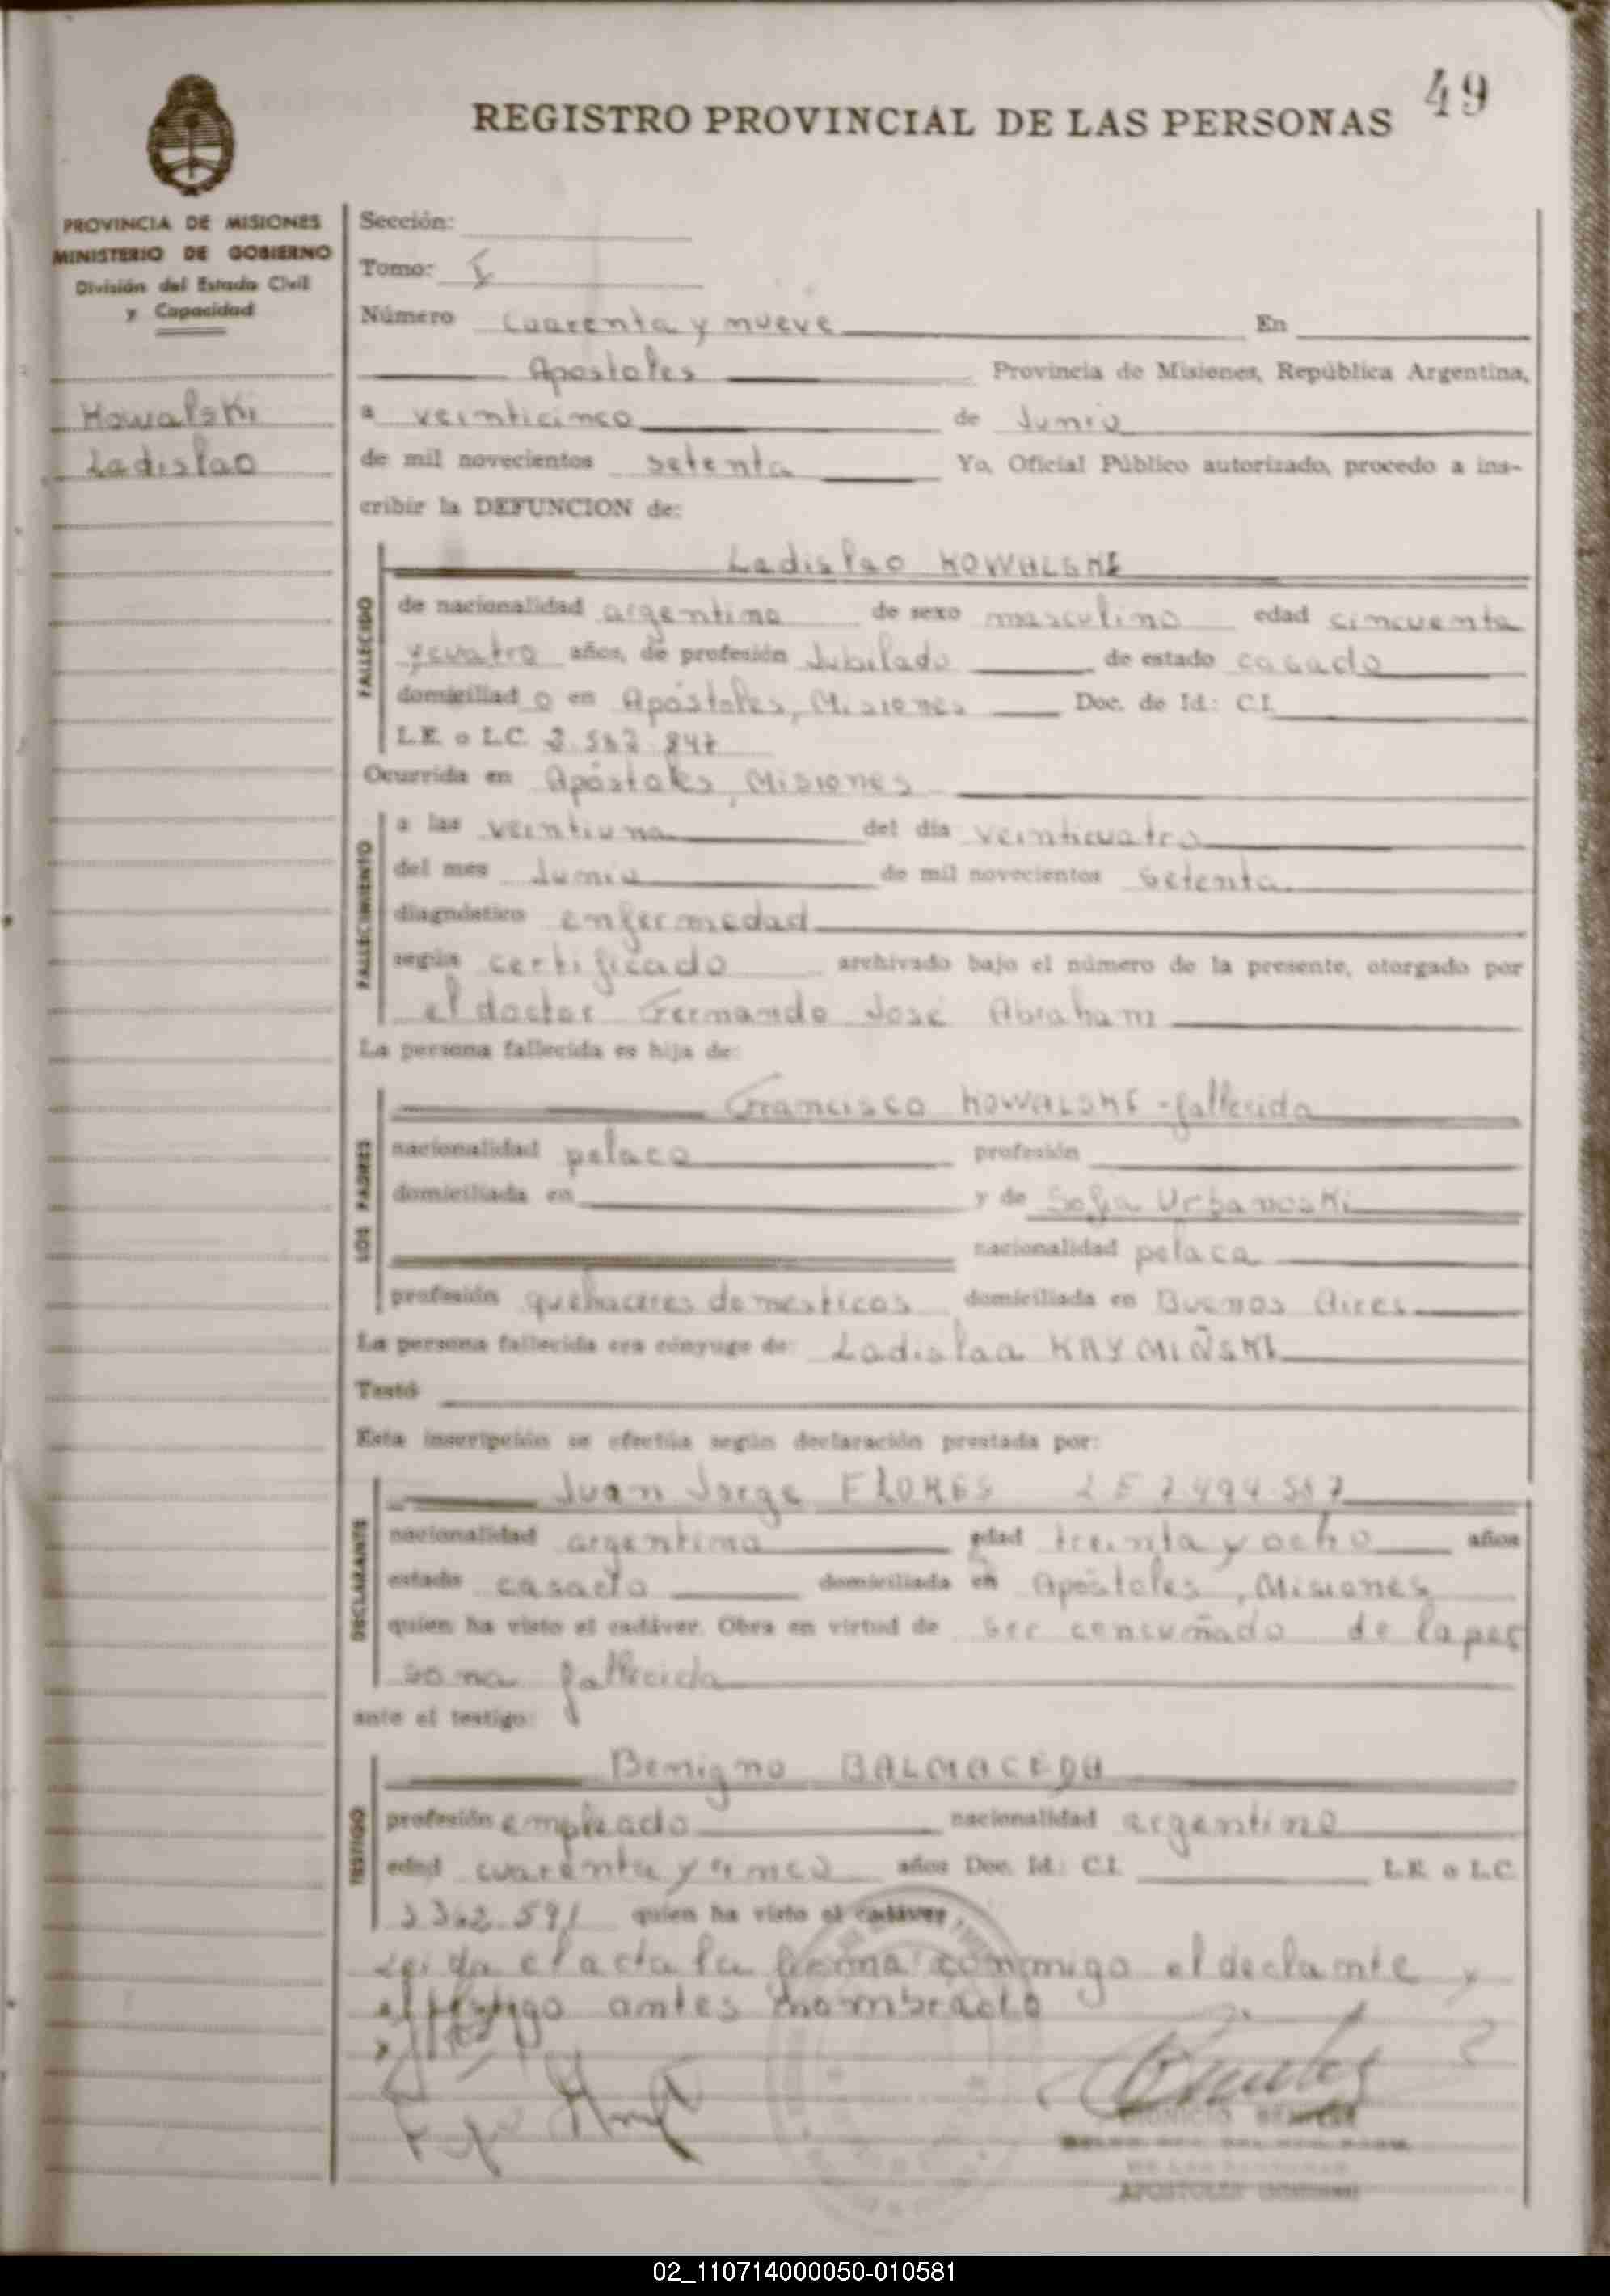 49
REGISTRO PROVINCIAL DE LAS PERSONAS
PROVINCIA DE MISIONES
MINISTERIO DE GOBIERNO
División del Estado Civil
y Capacidad
Kowalski
Ladislao
Sección:
Tomo: I
Número cuarenta y nueve En
Apostoles Provincia de Misiones, República Argentina,
a veinticinco de Junio
de mil novecientos setenta Yo, Oficial Público autorizado, procedo a ins-
cribir la DEFUNCION de:
Ladislao KOWALSKI
FALLECIDO
de nacionalidad argentina de sexo masculino edad cincuenta
y cuatro años, de profesión Jubilado de estado casado
domiciliad o en Apóstoles, Misiones Doc. de Id.: C.I.
L.E. o L.C.
Ocurrida en Apóstoles, Misiones
FALLECIMIENTO
a las veintiuna del día veinticuatro
del mes Junio de mil novecientos setenta
diagnóstico enfermedad
según certificado archivado bajo el número de la presente, otorgado por
el doctor Fernando José Abraham
La persona fallecida es hija de:
LOS PADRES
Francisco KOWALSKI - fallecido
nacionalidad polaco profesión
domiciliada en y de Sofia Urbanoski
nacionalidad polaca
profesión quehaceres domesticos domiciliada en Buenos Aires
La persona fallecida era cónyuge de: Ladislaa KAYMIÑSKI
Testó
Esta inscripción se efectúa según declaración prestada por:
DECLARANTE
Juan Jorge FLORES LE 7.494.517
nacionalidad argentino edad treinta y ocho años
estado casado domiciliada en Apóstoles, Misiones
quien ha visto el cadáver. Obra en virtud de ser concuñado de la per
sona fallecida
ante el testigo:
TESTIGO
Benigno BALMACEDA
profesión empleado nacionalidad argentino
edad cuarenta y cinco años Doc. Id.: C.I. L.E. o L.C.
591 quien ha visto el cadáver
Leida el acta la firma conmigo el declante y
el testigo antes nombrado
DIONICIO
APOSTOLES (MISIONES)
02_110714000050-010581